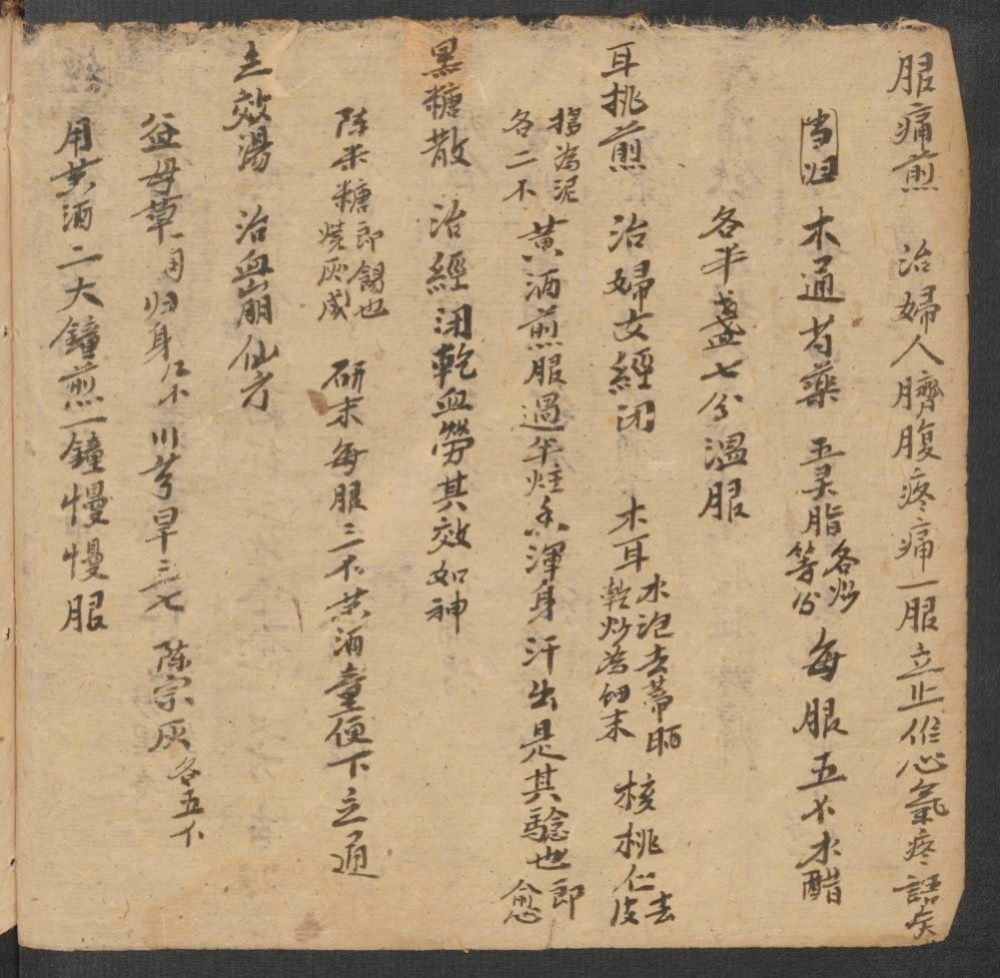 服痛煎　治婦人臍腹疼痛一服立止作心氣疼
当归　木通　芍藥　五灵脂各炒等分　每服五个水醋
各半盞七分溫服
耳桃煎　治婦女經闭　木耳水泡去蒂晒乾炒為細末　核桃仁去皮
搗為泥各二个　黃酒煎服過半炷香渾身汗出是其驗也即愈
黑糖散　治經闭乾血勞其效如神
陈米糖即錫也燒灰成　研末每服三个黄酒童便下立通
立效湯　治血崩仙方
益母草　用归身　川芎　旱三七　陈宗灰各五个
用黄酒二大鐘煎一鐘慢慢服